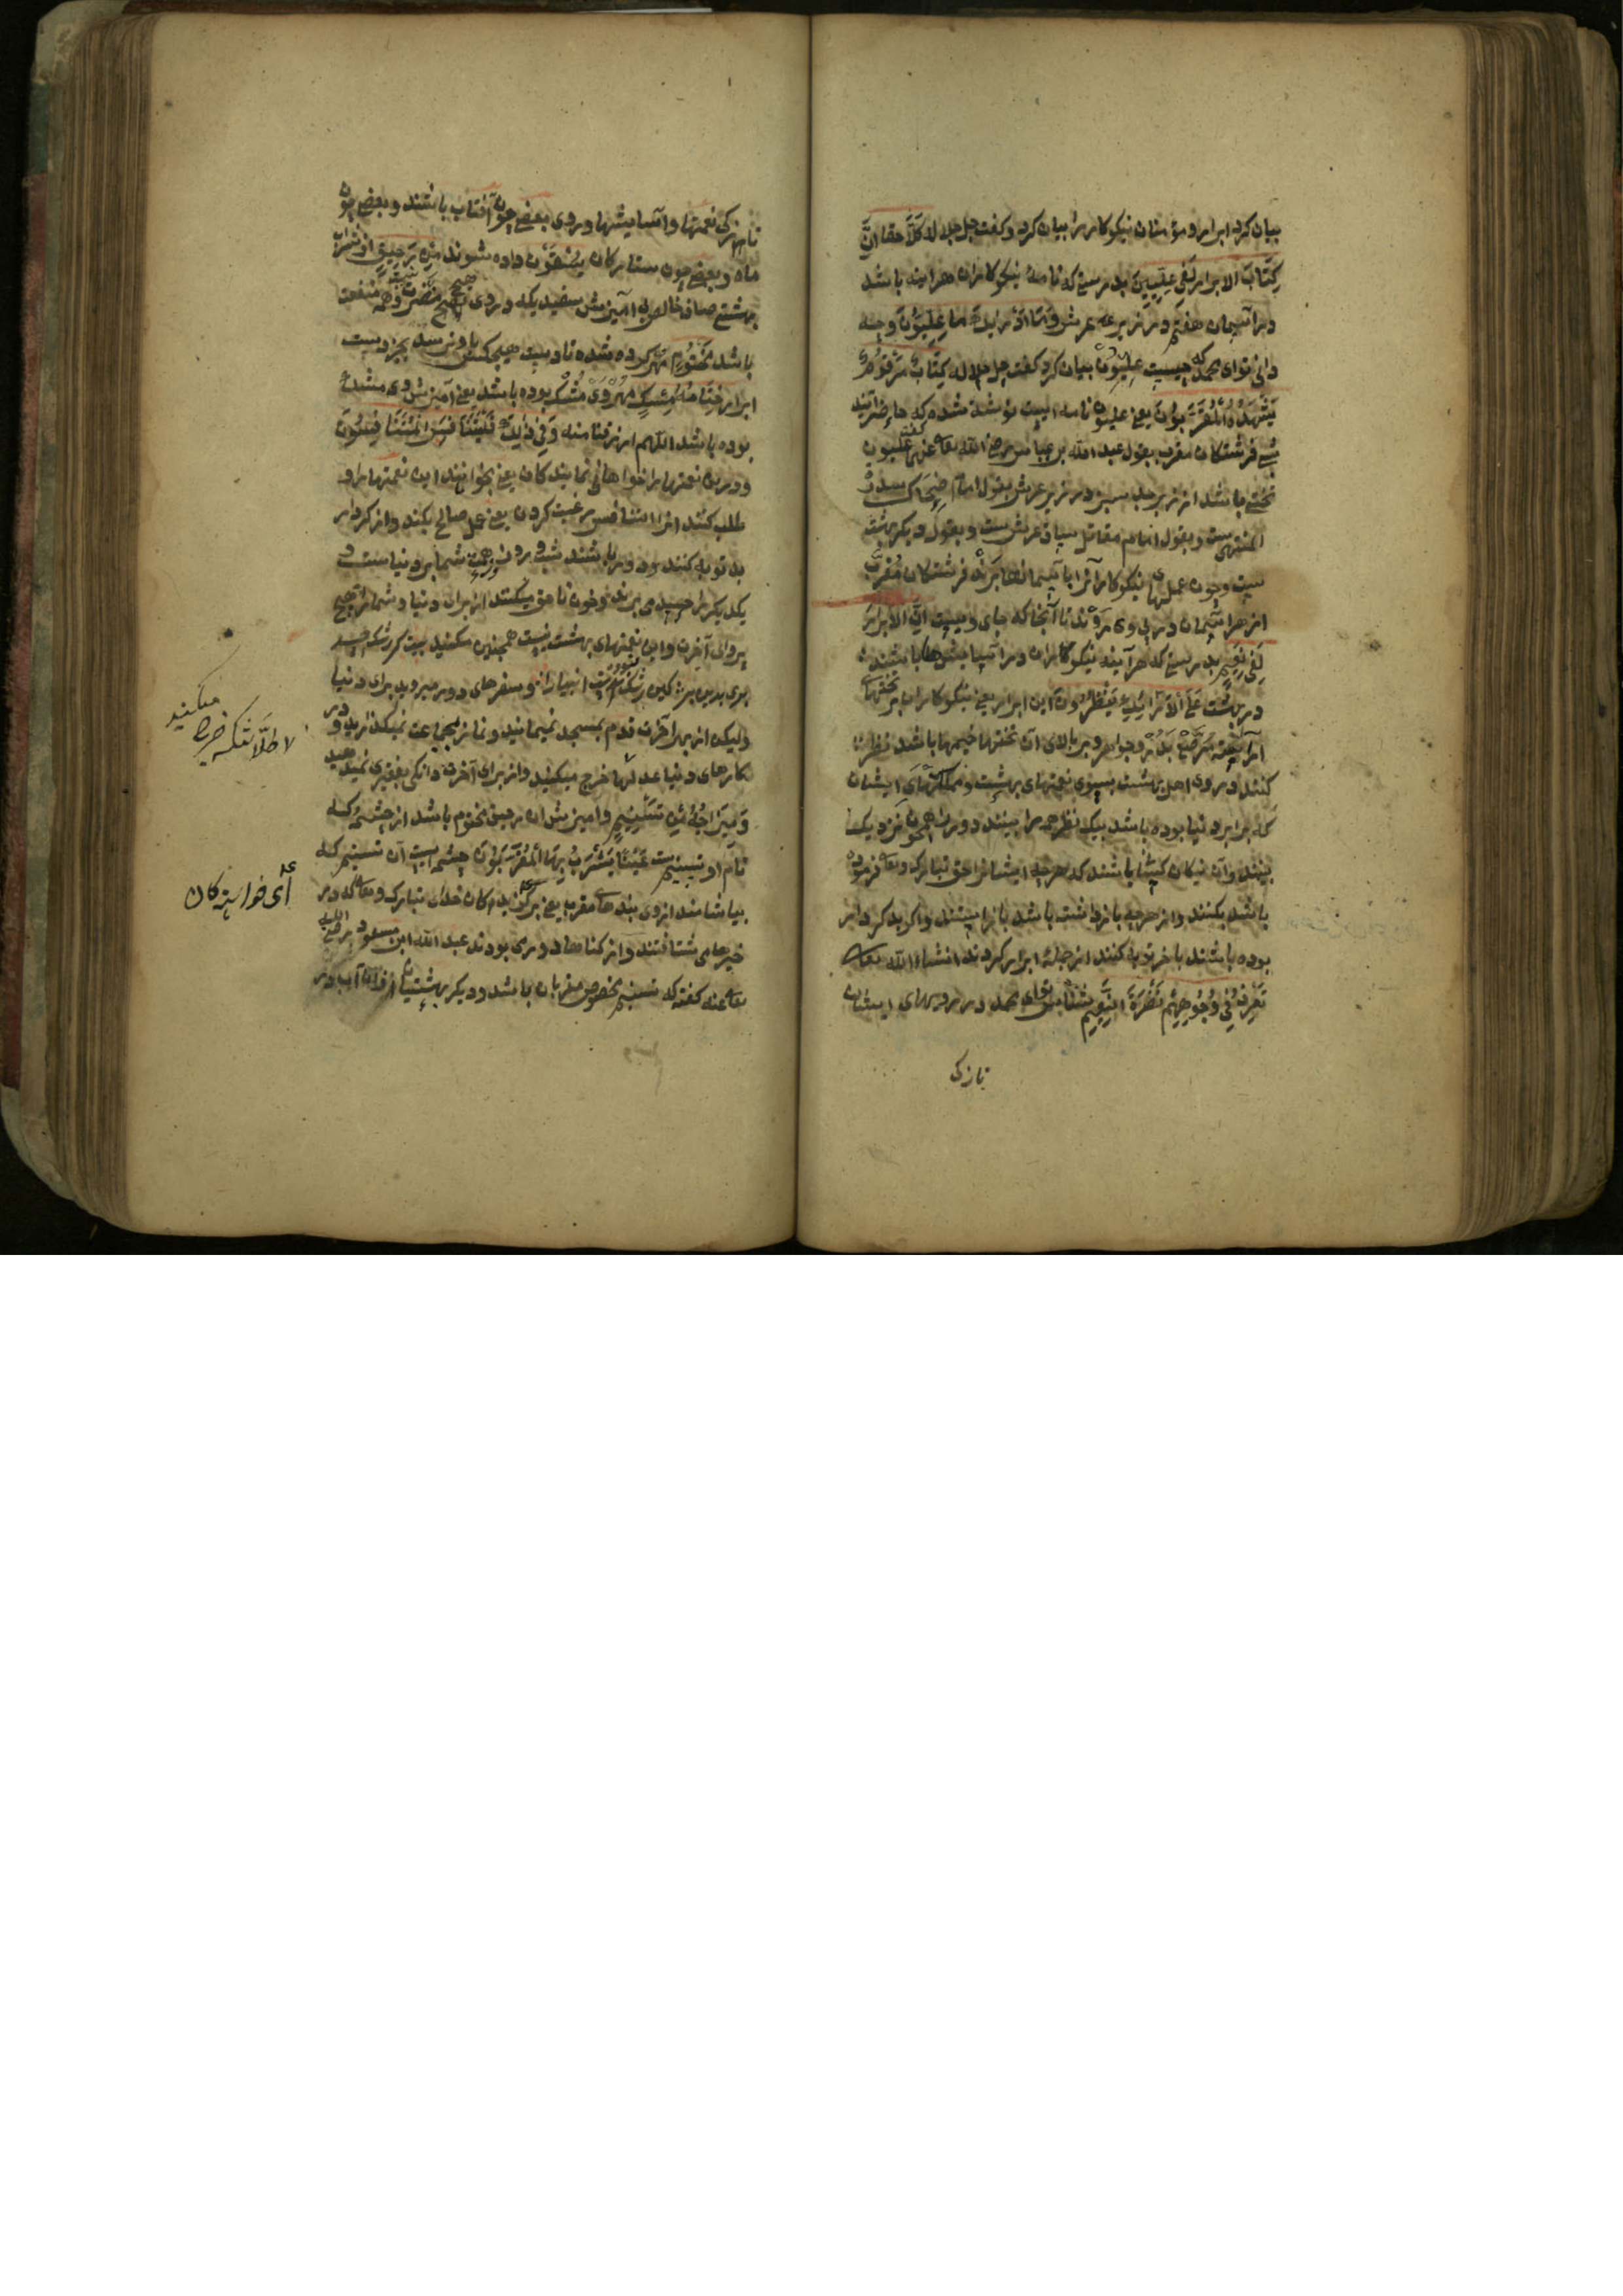 بیان کرد ابرار و مؤمنان نیکوکار را بیان کرد و کفت جل جلاله کَلَّا حقا اِنَّ
کِتَابَ الابرار لَفِی عِلِّیِینَ بدرستی که نامهٔ نیکوکاران هر اینه باشد
در آسمان هفتم در زیر عرش وَمَا اَدْرٰیکَ مَا عِلِّیُّونَ و چه
دانی تو ای محمد که چیست عِلِّیُّونَ بیان کرد کفت جل جلاله کِتَابٌ مَرْقُومٌ
یَشْهَدُهُ الْمُقَرَّبُونَ یعنی علیون نامه ایست نوشته شده که حاضر آیند
فرشتکان مقرب بقول عبد الله بن عباس رضی الله تعا عنهما کفته علیون
تختی باشد از زبرجد سبز در زیر عرش بقول امام ضحاک سدرة
المنتهی ست و بقول امام مقاتل ساق عرش ست و بقول دیکر بهشت
ست و چون عملهای نیکوکار آنرا بآسمانها برند فرشتکان مقرب
از هر آسمان در پی وی روند تا آنجا که جای ویست اِنَّ الْاَبْرَارَ
لَفِی نَعِیمٍ بدرستی که هر آینه نیکوکاران در آسایشها باشند
در بهشت عَلَی الْاَرَائِکِ یَنْظُرُونَ این ابرار یعنی نیکوکاران بر تختهای
آراسته مُرَصَّع بَدُرّ و جواهر و بر بالای آن تختها خیمها باشد نظر
کنند در وی اهل بهشت بسوی نعمتهای بهشت و مملکتهای ایشان
که برابر دنیا بوده باشد بیک نظر همه را بینند دور را همچون نزدیک
بینند و آن نیکان کسانی باشند که هر چه ایشانرا حق تبارک و تعا فرموده
باشد بکنند و از هر چه بازداشته باشد باز ایستند و اکر بد کردار
بوده باشند باخر توبه کنند از جملهٔ ابرار کردند انشاء الله تعا
تَعْرِفُ فِی وُجُوهِهِمْ نَضْرَةَ النَّعِیمِ بشناسی تو ای محمد در رویهای ایشان
نازکی
نازکی نعمتها و آسایشها و روی بعضی چون آفتاب باشند و بعضی چون
ماه و بعضی چون ستارکان یُسْقَوْنَ داده شوند مِنْ رَحِیقٍ از شراب
بهشتی صاف خالص بی آمیزش سفید که در وی هیچ مضرت نیست و همه منفعت
باشد مَخْتُومٍ مهر کرده شده تا دست هیچکس باو نرسد بجز دست
ابرار خِتَامُهُ مِسْکٌ مُهْر وَیْ مُشْک بوده باشد یعنی آمیزش وی مشک
بوده باشد اللهم ارزقنا منه وَفِی ذٰلِکَ فَلْیَتَنَافَسِ الْمُتَنَافِسُونَ
و درین نعمتها را خواهانی نمایندکان یعنی بخوانند این نعمتها را و
طلب کنند انرا التنافس رغبت کردن یعنی عمل صالح بکنند و از کردار
بد توبه کنند و در باشند شب و روز همت شما بر دنیاست و
یکدیکر را حسد می برند و خون ناحق میکنند از برای دنیا و شما را هیچ
پروای آخرت و این نعمتهای بهشت نیست همچنین مکنید
و سفرهای دور میروید برای دنیا
ولیکن از بهر آخرت قدم بمسجد نمیمانید و نماز بجماعت نمیکذارید و در
کارهای دنیا عدلیها خرج میکنید و از برای آخرت دانکی بفقیری نمیدهید
وَمِزَاجُهُ مِنْ تَسْنِیمٍ و امیزش ان رحیق مختوم باشد از چشمهٔ که
نام او تسنیم ست عَیْنًا یَشْرَبُ بِهَا الْمُقَرَّبُونَ چشمه ایست آن تسنیم که
بیاشامند از وی بندهای مقرب یعنی برکزیدکان خدای تبارک و تعا که در
خیرها می شتافتند و از کناهها دوری بودند عبد الله ابن مسعود رضی الله
تعا عنه کفته که تسنیم مخصوص مقربان باشد و دیکر بهشتیانرا آب در
لا طلّا تنکه خرج میکنید
ای خواهندکان